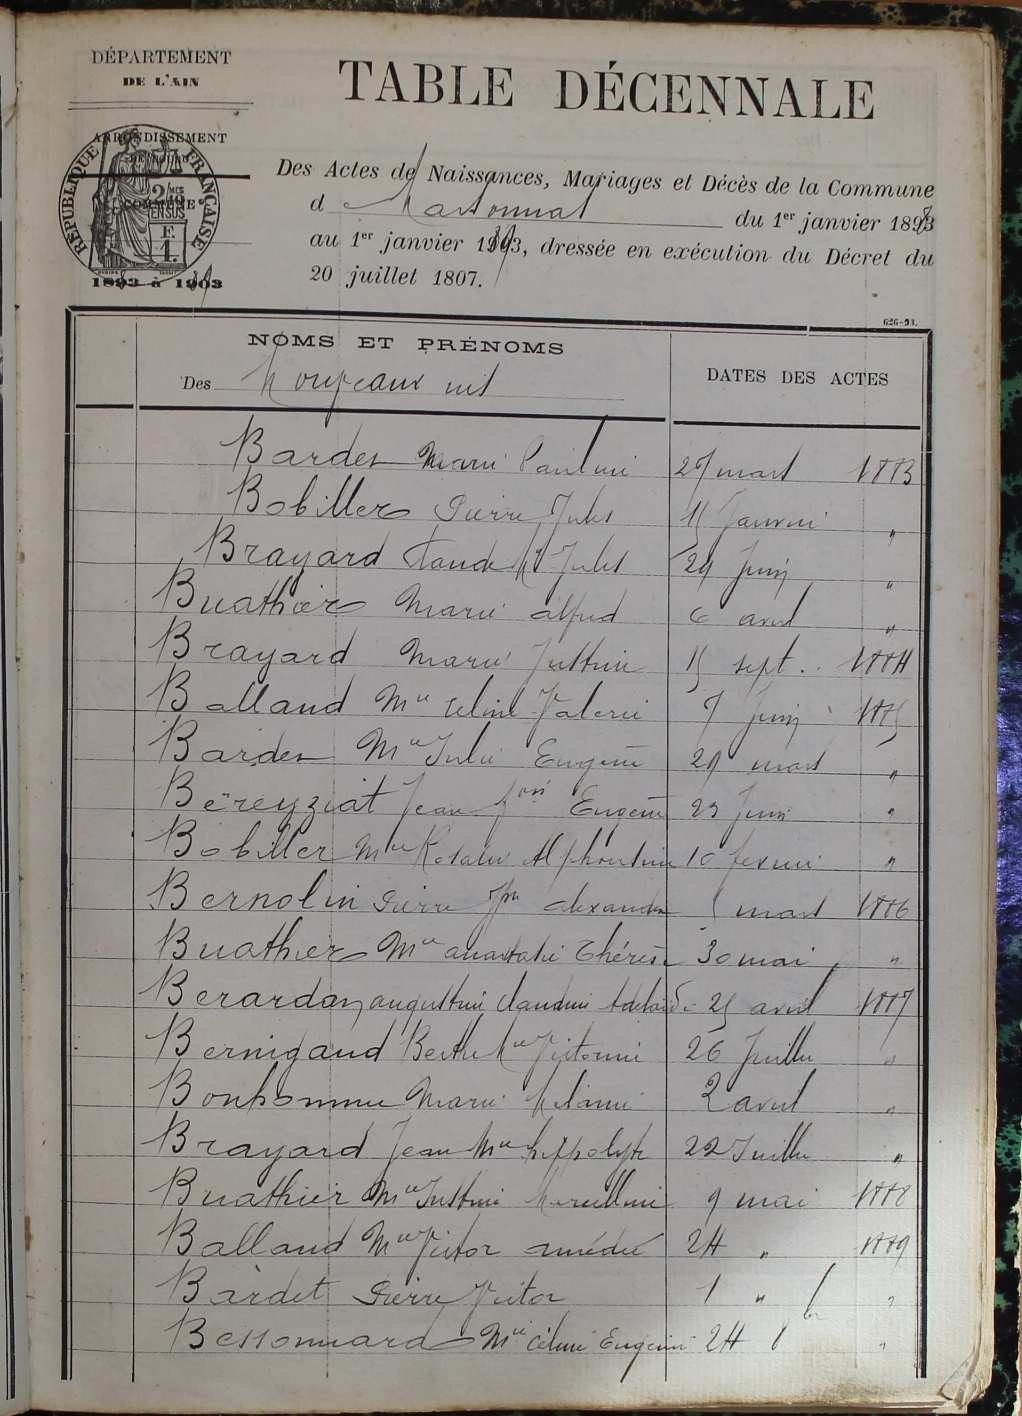 DÉPARTEMENT
DE L'AIN
TABLE DÉCENNALE
ARRONDISSEMENT
RÉPUBLIQUE FRANÇAISE
COMMUNE
1893 à 1903
Des Actes de Naissances, Mariages et Décès de la Commune
d Marsonnas du 1er janvier 1893
au 1er janvier 1903, dressée en exécution du Décret du
20 juillet 1807.
626-93.
NOMS ET PRÉNOMS
Des Nouveaux nés
DATES DES ACTES
Bardet Marie Pauline 27 mars 1883
Bobiller Pierre Jules 15 Janvier "
Brayard Claude Jules 29 Juin "
Buathier Marie alfred 6 avril "
Brayard Marie Justine 15 sept. 1884
Balland Mie Celine Valerie 7 Juin 1885
Bardet Mie Julie Eugénie 29 mars "
Béreyziat Jean Eugène 23 Juin "
Bobiller Mie Rosalie Alphonsine 10 fevrier "
Bernolin Pierre Jph alexandre mars 1886
Buathier Mie anastasie Thérèse 30 mai "
Berardan augustine Claudine Adelaïde 25 avril 1887
Bernigaud Berthe Mie Victorine 26 Juillet "
Bonhomme Marie Melanie 2 avril "
Brayard Jean Mie hippolyte 22 Juillet "
Buathier Mie Justine Marcelline 9 mai 1888
Balland Mie Victor amédée 24 " 1889
Bardet Pierre Victor 1 " "
Bessonnard Mie Céline Eugénie 24 "